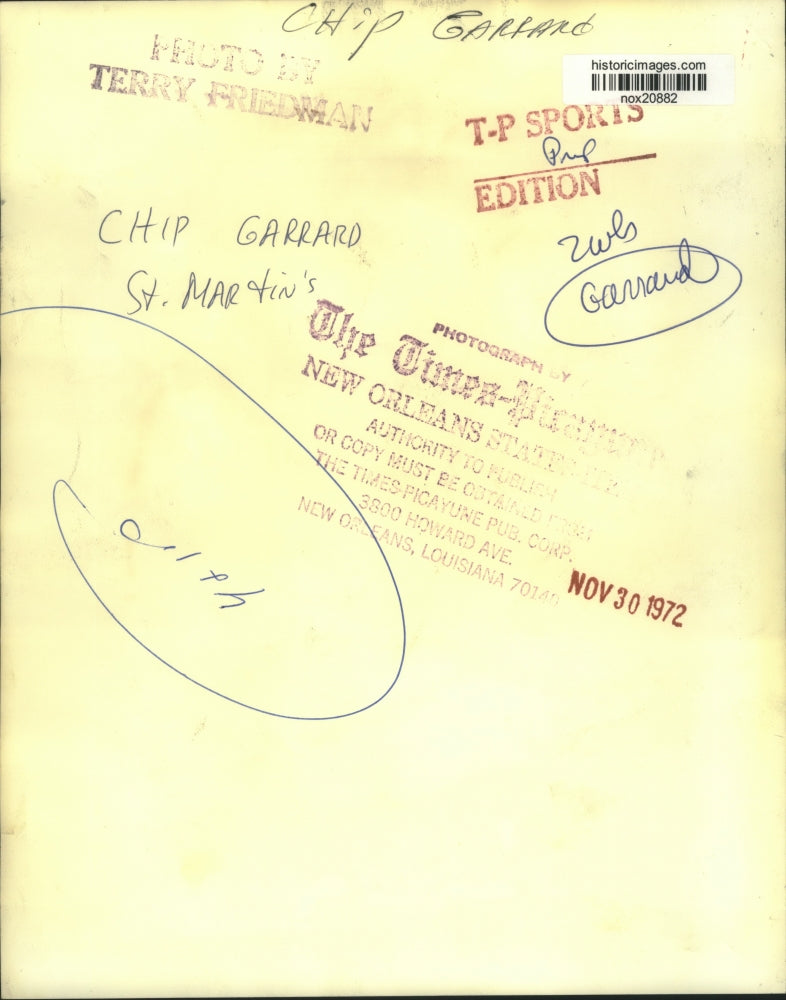 CHip GARRARD
historicimages.com
nox20882
PHOTO BY
TERRY FRIEDMAN
T-P SPORTS
EDITION
CHIP GARRARD
St. MARtin's
Garrard
PHOTOGRAPH BY
The Times-Picayune
NEW ORLEANS STATES-ITEM
AUTHORITY TO PUBLISH
OR COPY MUST BE OBTAINED FROM
THE TIMES-PICAYUNE PUB. CORP.
3800 HOWARD AVE.
NEW ORLEANS, LOUISIANA 70140
NOV 30 1972